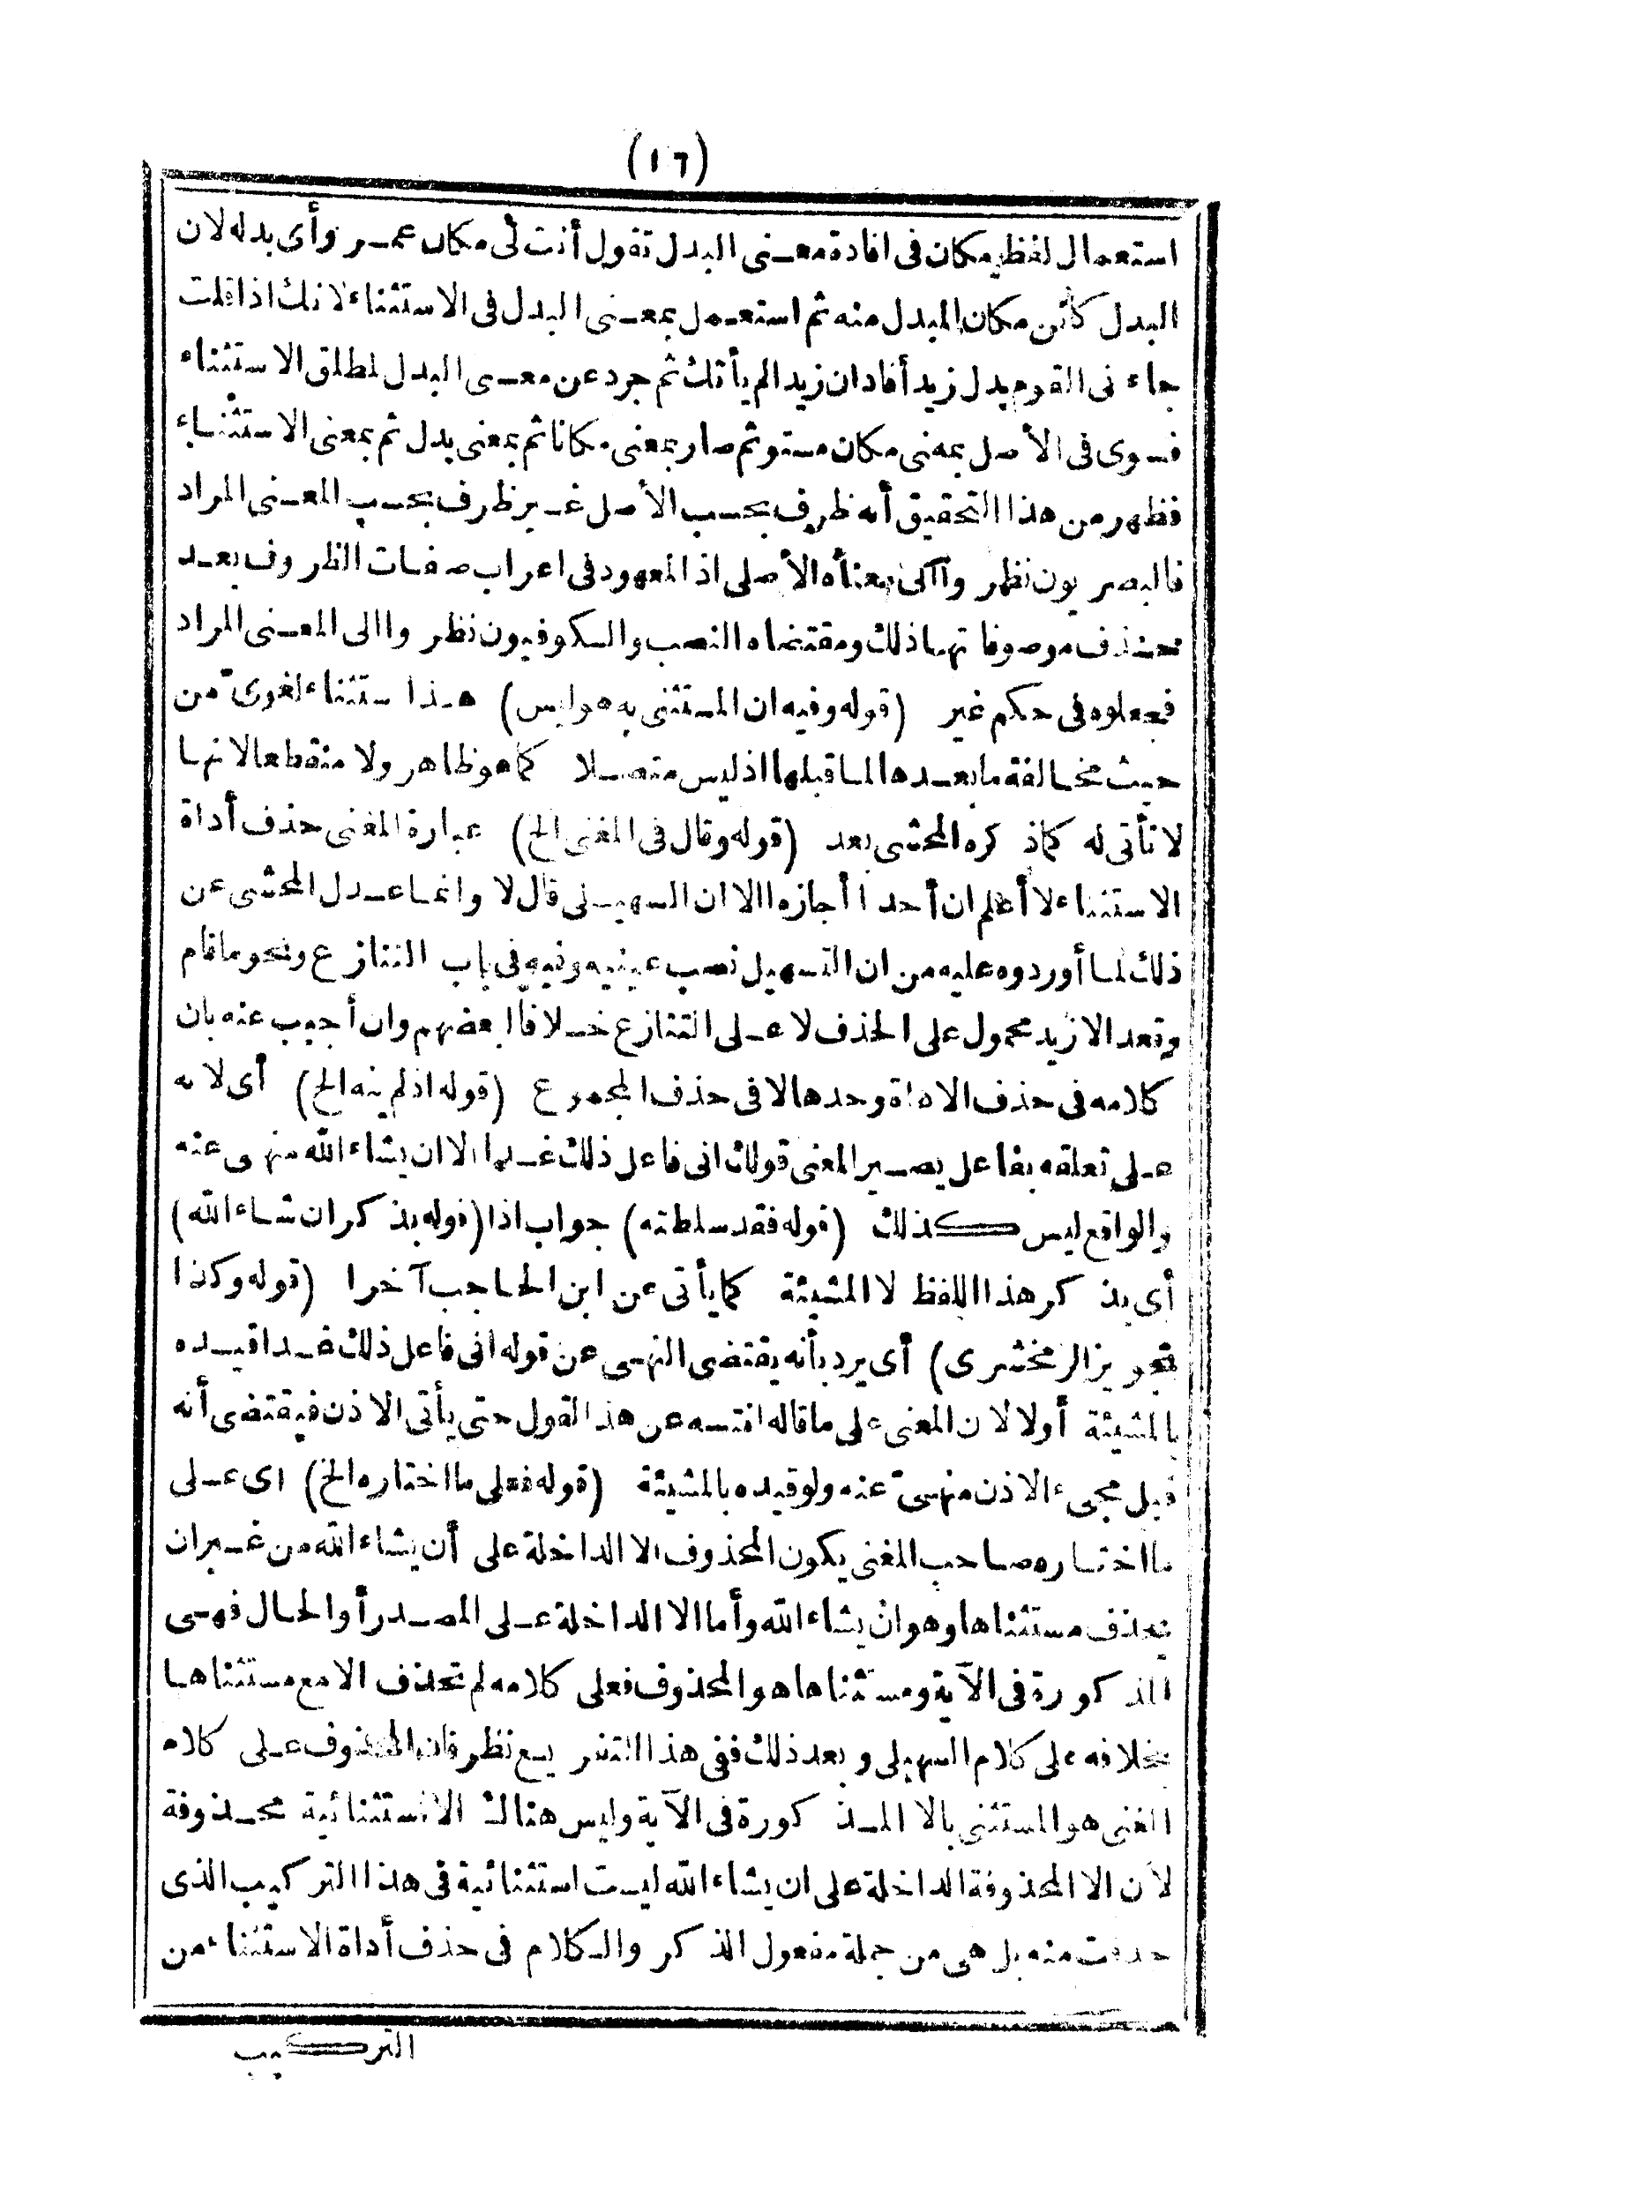 (١٦)
استعمال لفظ مكان فى افادة معنى البدل تقول أنت لى مكان عمرو أى بدله لان
البدل كائن مكان المبدل منه ثم استعمل بمعنى البدل فى الاستثناء لانك اذا قلت
جاءنى القوم بدل زيد أفاد ان زيدا لم يأتك ثم جرد عن معنى البدل لمطلق الاستثناء
فسوى فى الأصل بمعنى مكان مستو ثم صار بمعنى مكانا ثم بمعنى بدل ثم بمعنى الاستثناء
فظهر من هذا التحقيق أنه ظرف بحسب الأصل غير ظرف بحسب المعنى المراد
فالبصريون نظروا الى معناه الأصلى اذ المعهود فى اعراب صفات الظروف بعد
حذف موصوفاتها ذلك ومقتضاه النصب والكوفيون نظروا الى المعنى المراد
فجعلوه فى حكم غير (قوله وفيه ان المستثنى به هو ليس) هذا استثناء لغوىّ من
حيث مخالفة ما بعدها لما قبلها اذ ليس متصلا كما هو ظاهر ولا منقطعا لانها
لا تأتى له كما ذكره المحشى بعد (قوله وقال فى المغنى الخ) عبارة المغنى حذف أداة
الاستثناء لا أعلم ان أحدا أجازه الا ان السهيلى قال لا وانما عدل المحشى عن
ذلك لما أوردوه عليه من ان التسهيل نصب عينيه وفيه فى باب التنازع ونحو ما قام
وقعد الا زيد محمول على الحذف لا على التنازع خلافا لبعضهم وان أجيب عنه بان
كلامه فى حذف الاداة وحدها لا فى حذف المجموع (قوله اذ لم ينه الخ) أى لانه
على تعلقه بفاعل يصير المعنى قولك انى فاعل ذلك غدا الا ان يشاء الله منهى عنه
والواقع ليس كذلك (قوله فقد سلطته) جواب اذا (قوله بذكر ان شاء الله)
أى بذكر هذا اللفظ لا المشيئة كما يأتى عن ابن الحاجب آخرا (قوله وكذا
تجويز الزمخشرى) أى يرد بأنه يقتضى النهى عن قوله انى فاعل ذلك غدا قيده
بالمشيئة أولا لان المعنى على ما قاله انته عن هذا القول حتى يأتى الاذن فيقتضى أنه
قبل مجىء الاذن منهىّ عنه ولو قيده بالمشيئة (قوله فعلى ما اختاره الخ) اى على
ما اختاره صاحب المغنى يكون المحذوف الا الداخلة على أن يشاء الله من غير ان
يحذف مستثناها وهو ان يشاء الله وأما الا الداخلة على المصدر أو الحال فهى
المذكورة فى الآية ومستثناها هو المحذوف فعلى كلامه لم تحذف الا مع مستثناها
بخلافه على كلام السهيلى وبعد ذلك ففى هذا التفريع نظر فان المحذوف على كلام
المغنى هو المستثنى بالا المذكورة فى الآية وليس هناك الا استثنائية محذوفة
لأن الا المحذوفة الداخلة على ان يشاء الله ليست استثنائية فى هذا التركيب الذى
حذفت منه بل هى من جملة مفعول الذكر والكلام فى حذف أداة الاستثناء من
التركيب